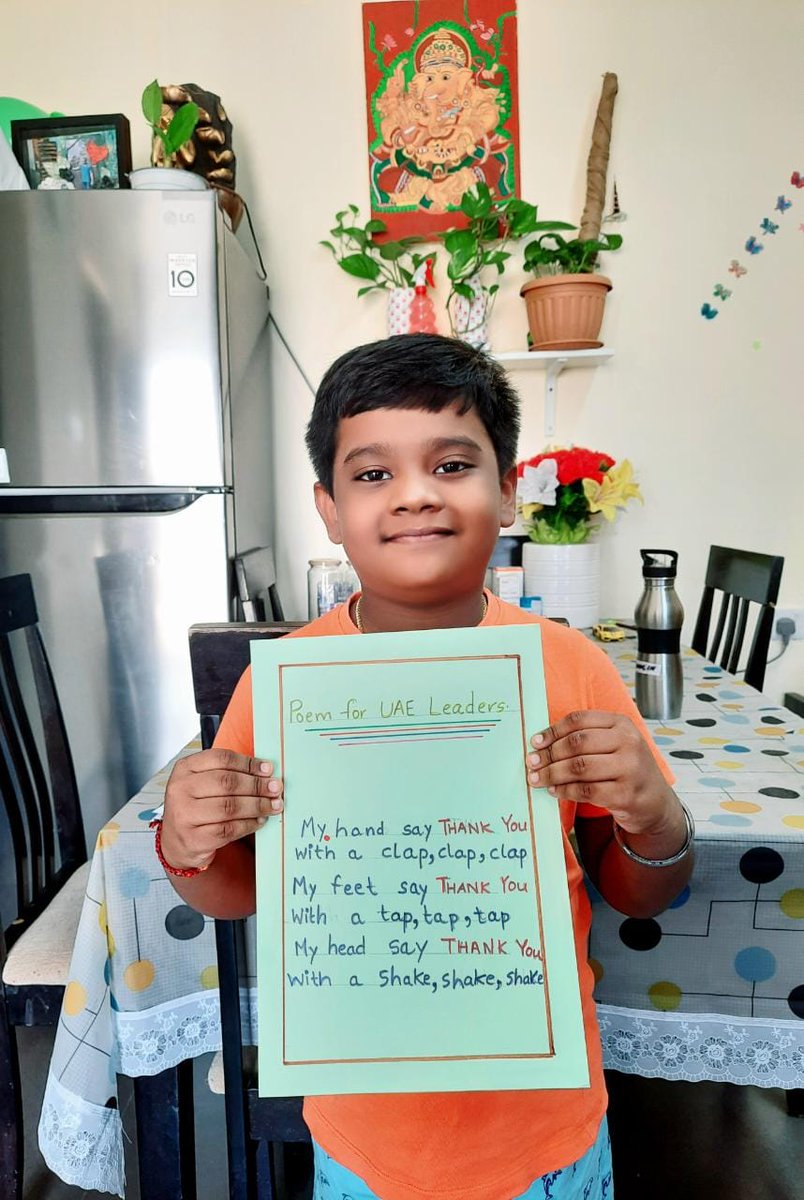 LG
10
Poem for UAE Leaders.
My hand say THANK YOU
with a clap, clap, clap
My feet say THANK YOU
With a tap, tap, tap
My head say THANK YOU
With a shake, shake, shake